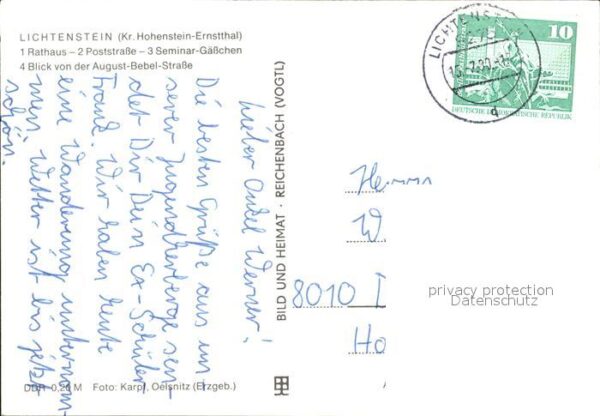 LICHTENSTEIN (Kr. Hohenstein-Ernstthal)
1 Rathaus – 2 Poststraße – 3 Seminar-Gäßchen
4 Blick von der August-Bebel-Straße
Lieber Onkel Werner!
Die besten Grüße aus un-
serer Jugendherberge sen-
det Dir Dein Ex-Schüler
Frank. Wir haben heute
eine Wanderung unternom-
men, Wetter ist bis jetzt
schön.
DDR 0,20 M Foto: Karpf, Oelsnitz (Erzgeb.)
BILD UND HEIMAT · REICHENBACH (VOGTL)
LICHTENST
10
DEUTSCHE DEMOKRATISCHE REPUBLIK
d
Herrn
W
8010
Ho
privacy protection
Datenschutz